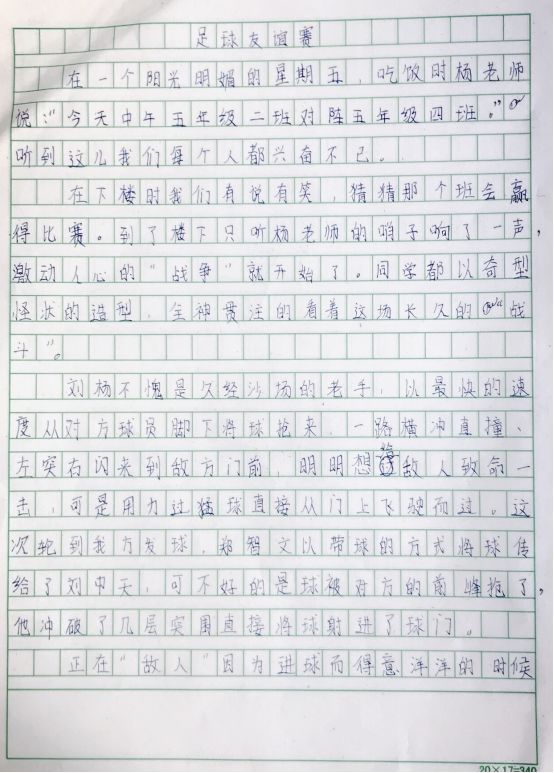 足球友谊赛
在一个阳光明媚的星期五，吃饭时杨老师
说："今天中午五年级二班对阵五年级四班。"
听到这儿我们每个人都兴奋不已。
在下楼时我们有说有笑，猜猜那个班会赢
得比赛。到了楼下只听杨老师的哨子响了一声，
激动人心的"战争"就开始了。同学都以奇型
怪状的造型，全神贯注的看着这场长久的"战
斗"。
刘杨不愧是久经沙场的老手，以最快的速
度从对方球员脚下将球抢来，一路横冲直撞、
左突右闪来到敌方门前，明明想给敌人致命一
击，可是用力过猛球直接从门上飞驶而过。这
次轮到我方发球，郑智文以带球的方式将球传
给了刘中天，可不好的是球被对方的前峰抢了，
他冲破了几层突围直接将球射进了球门。
正在"敌人"因为进球而得意洋洋的时候
20×17=340